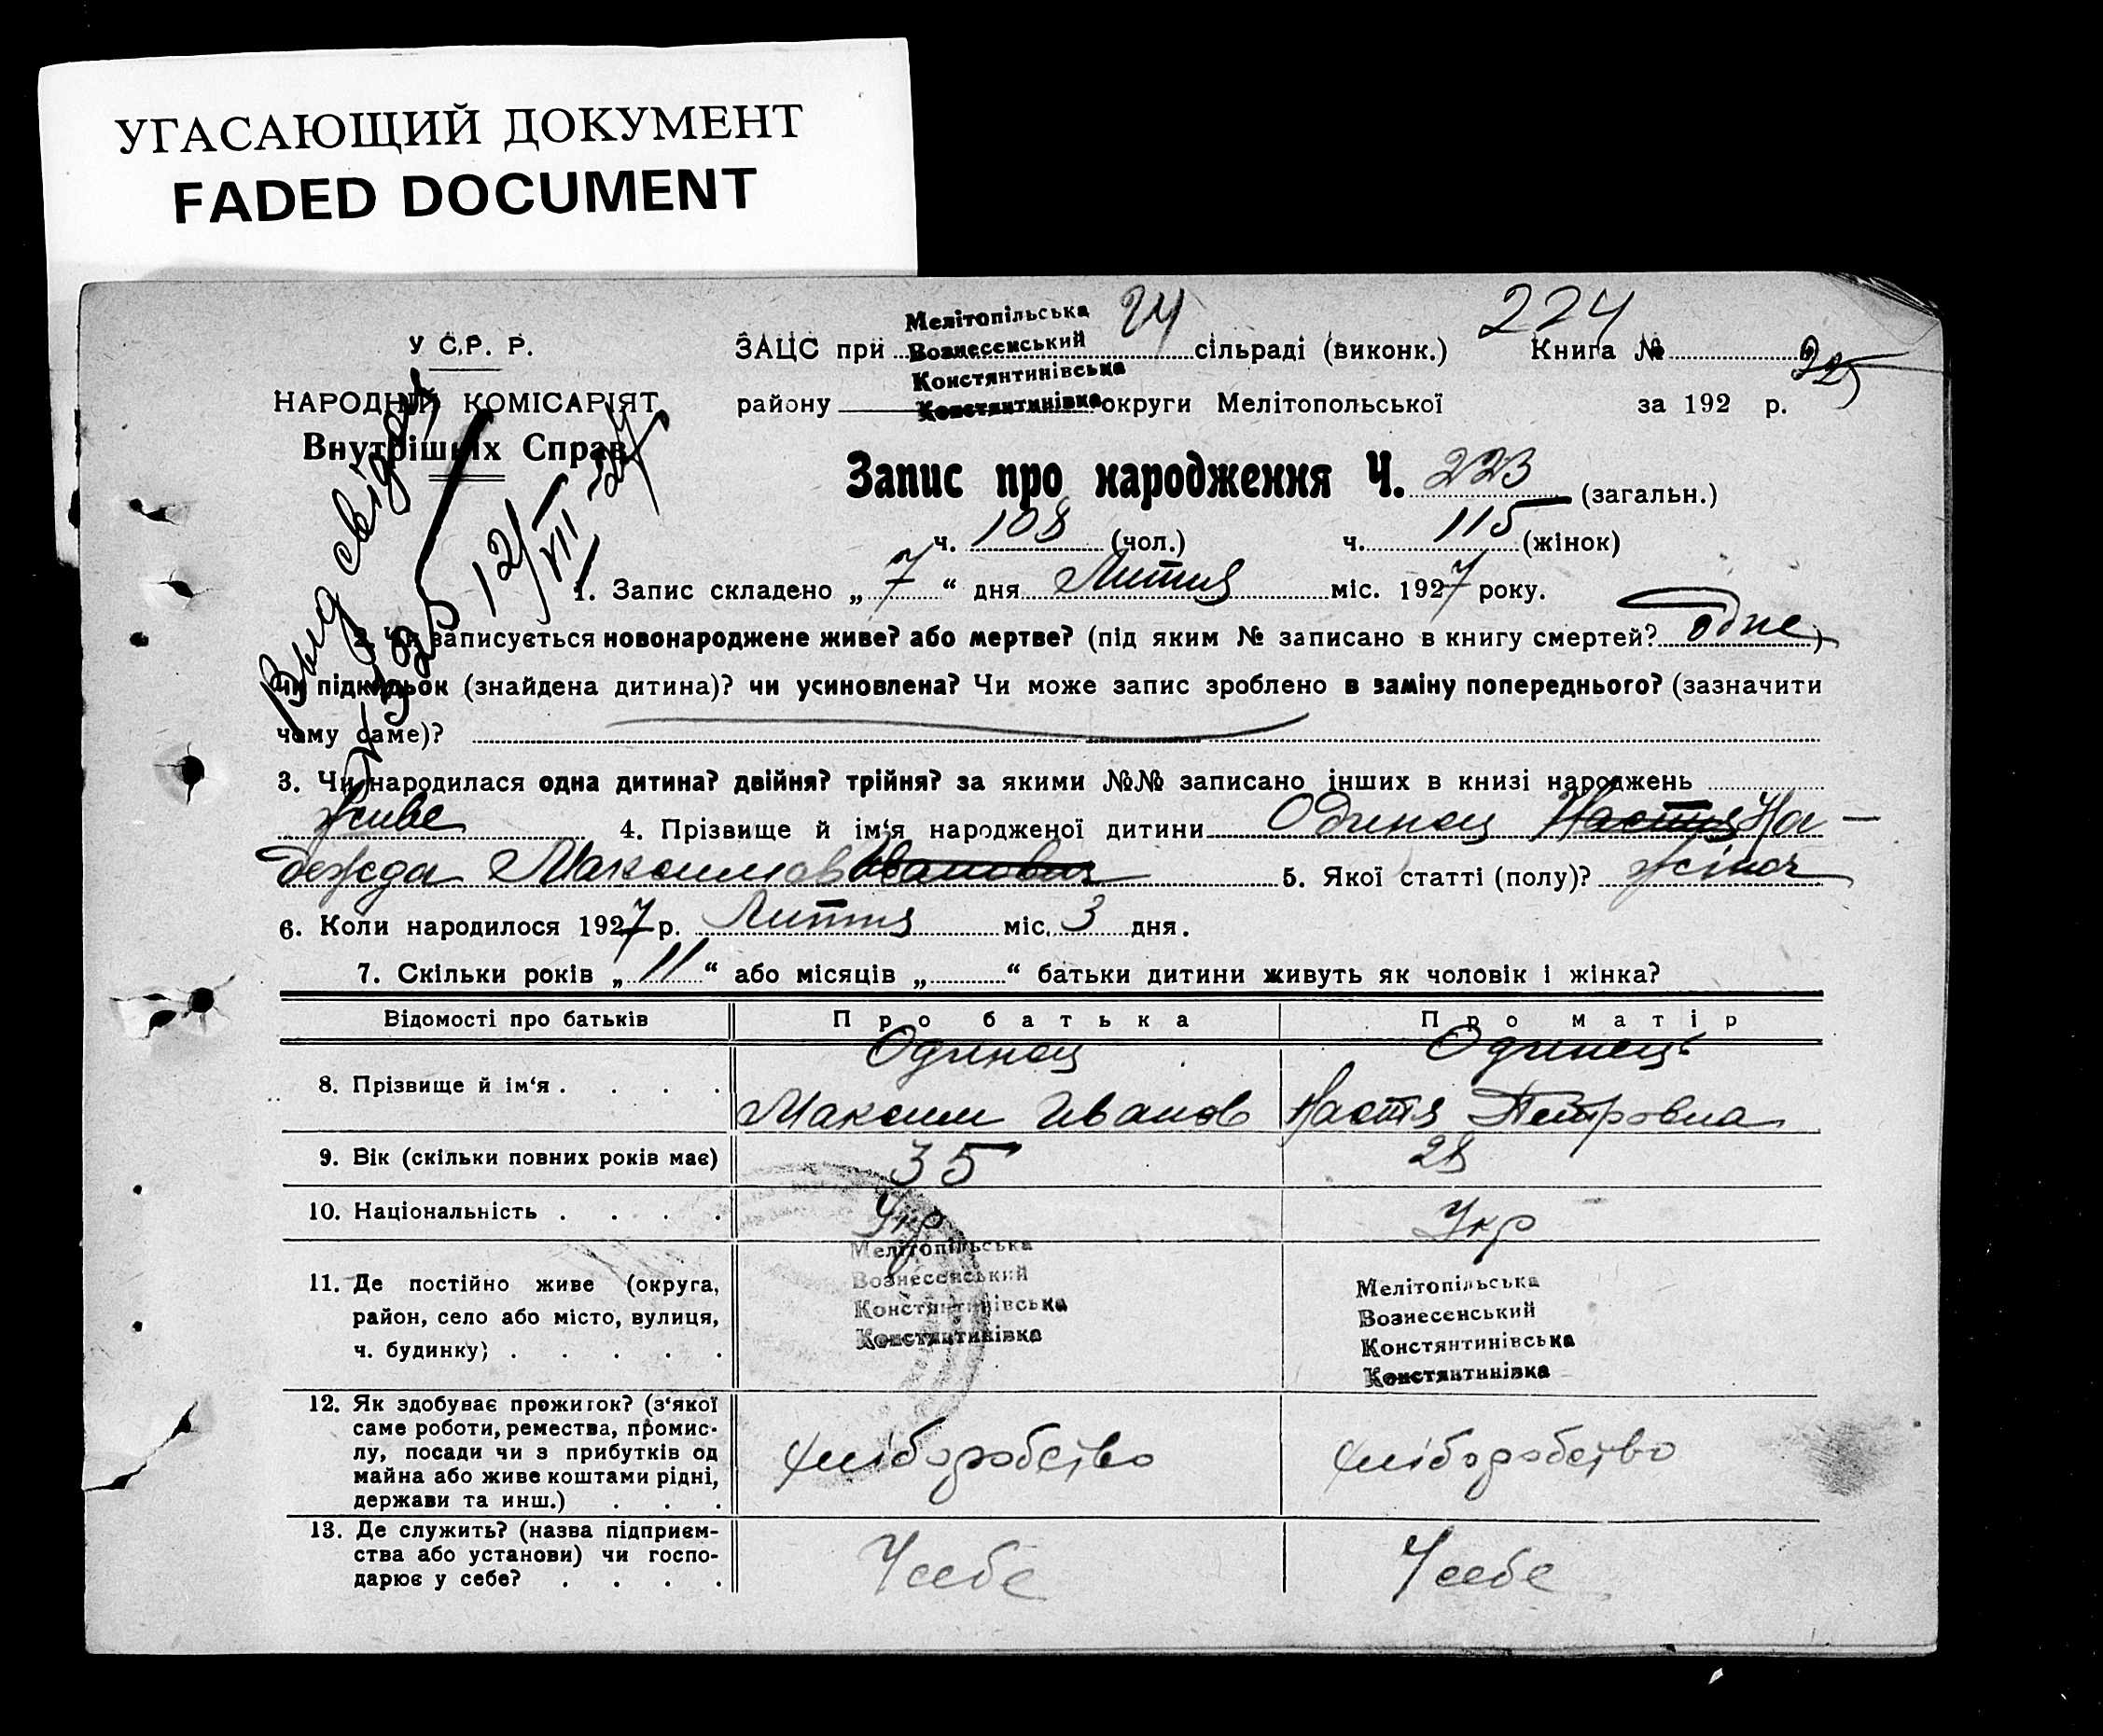 УГАСАЮЩИЙ ДОКУМЕНТ
FADED DOCUMENT
У С.Р. Р.
НАРОДНИЙ КОМІСАРІЯТ
Внутрішніх Справ
Мелітопільська 24 224
ЗАЦС при Вознесенський сільраді (виконк.) Книга №
Констянтинівська
району Констянтинівка округи Мелітопольської за 192 р.
Запис про народження Ч. 223 (загальн.)
ч. 108 (чол.) ч. 115 (жінок)
1. Запис складено „ 7 “ дня Липня міс. 1927 року.
2. Чи записується новонароджене живе? або мертве? (під яким № записано в книгу смертей? одне)
чи підкидьок (знайдена дитина)? чи усиновлена? Чи може запис зроблено в заміну попереднього? (зазначити
чому саме)?
3. Чи народилася одна дитина? двійня? трійня? за якими №№ записано інших в книзі народжень
живе 4. Прізвище й ім‘я народженої дитини Одинец Настя На-
дежда Максимов Ивановна 5. Якої статті (полу)? жіноч
6. Коли народилося 1927 р. Липня міс. 3 дня.
7. Скільки років „ 11 “ або місяців „ “ батьки дитини живуть як чоловік і жінка?
Відомості про батьків Про батька Про матір
8. Прізвище й ім‘я . . . . Одинец Одинець
Максим Иванов Настя Петровна
9. Вік (скільки повних років має) 35 28
10. Національність . . . . Укр Укр
11. Де постійно живе (округа,
район, село або місто, вулиця,
ч. будинку) . . . . .
Мелітопільська Мелітопільська
Вознесенський Вознесенський
Констянтинівська Констянтинівська
Констянтинівка Констянтинівка
12. Як здобуває прожиток? (з‘якої
саме роботи, ремества, промис-
лу, посади чи з прибутків од
майна або живе коштами рідні,
держави та инш.) . . .
хліборобство хліборобство
13. Де служить? (назва підприєм-
ства або установи) чи госпо-
дарює у себе? . . . .
У себе У себе